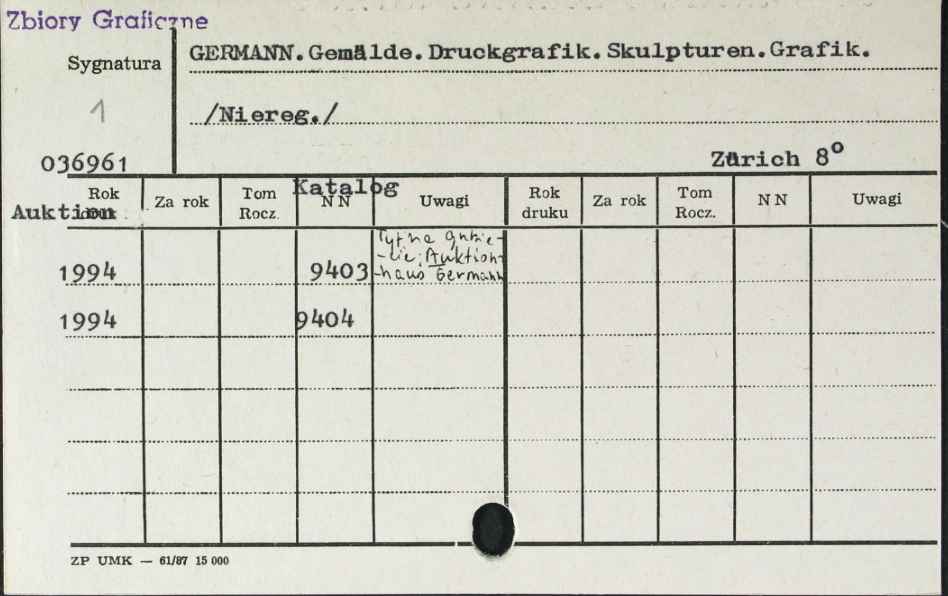 Zbiory Graficzne
Sygnatura
GERMANN. Gemälde. Druckgrafik. Skulpturen. Grafik.
1
/Niereg./
036961
Zürich 8°
Rok Za rok Tom Rocz. Katalog NN Uwagi Rok druku Za rok Tom Rocz. NN Uwagi
Auktion
1994 9403 Auktion-
-haus Germann
1994 9404
ZP UMK — 61/87 15 000